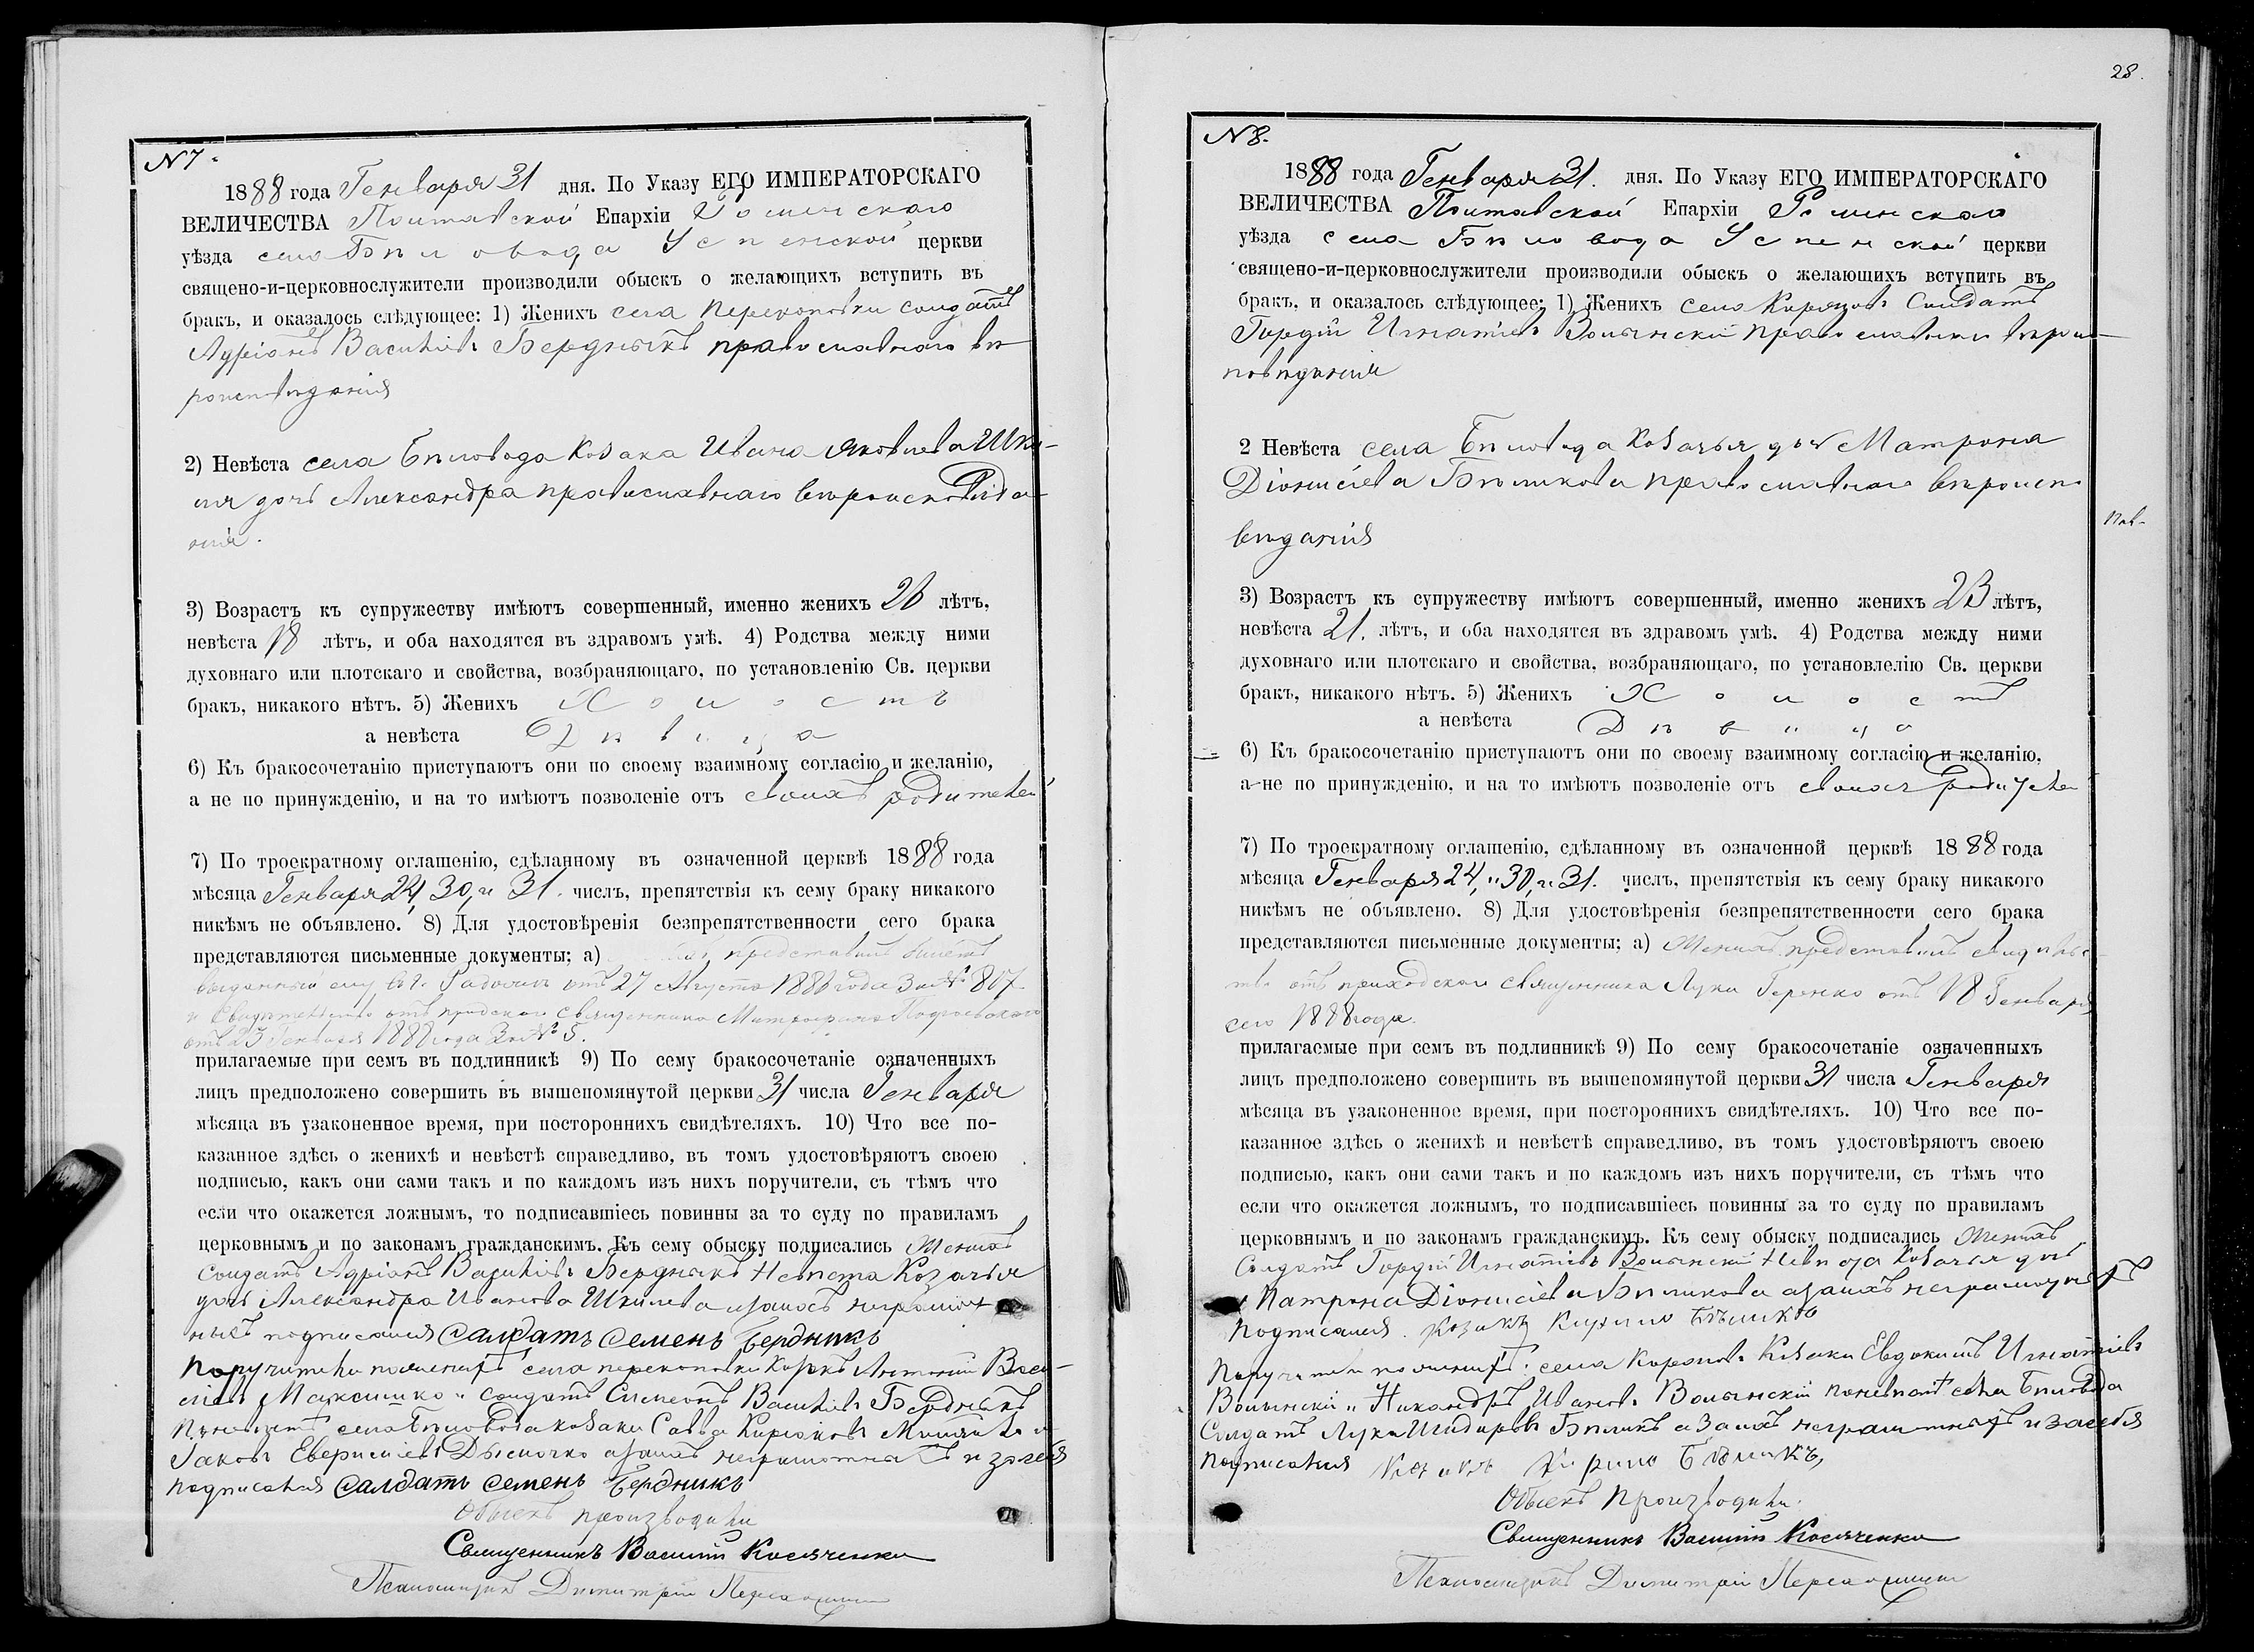 N 7.
1888 года Генваря 31 дня. По Указу ЕГО ИМПЕРАТОРСКАГО
ВЕЛИЧЕСТВА Полтавской Епархіи Роменскаго
уѣзда села Бѣловода Успенской церкви
священо-и-церковнослужители производили обыскъ о желающихъ вступить въ
бракъ, и оказалось слѣдующее: 1) Женихъ села Перекоповки солдатъ
Адріанъ Василіевъ Бердныкъ православнаго вѣ
роисповѣданія
2) Невѣста села Бѣловода Козака Ивана Яковлева Шки-
ля дочь Александра православнаго вѣроисповѣда-
нія.
3) Возрастъ къ супружеству имѣютъ совершенный, именно женихъ 26 лѣтъ,
невѣста 18 лѣтъ, и оба находятся въ здравомъ умѣ. 4) Родства между ними
духовнаго или плотскаго и свойства, возбраняющаго, по установленію Св. церкви
бракъ, никакого нѣтъ. 5) Женихъ Холостъ
а невѣста Дѣвица
6) Къ бракосочетанію приступаютъ они по своему взаимному согласію и желанію,
а не по принужденію, и на то имѣютъ позволеніе отъ своихъ родителей
7) По троекратному оглашенію, сдѣланному въ означенной церквѣ 1888 года
мѣсяца Генваря 24, 30, и 31. числъ, препятствія къ сему браку никакого
никѣмъ не объявлено. 8) Для удостовѣренія безпрепятственности сего брака
представляются письменные документы; а) представилъ билетъ
выданный ему въ г. отъ 27 Августа 1886 года за № 807
и Свидѣтельство отъ священника Митрофана
отъ 23 Генваря 1888 года за № 5.
прилагаемые при семъ въ подлинникѣ 9) По сему бракосочетаніе означенныхъ
лицъ предположено совершить въ вышепомянутой церкви 31 числа Генваря
мѣсяца въ узаконенное время, при постороннихъ свидѣтеляхъ. 10) Что все по-
казанное здѣсь о женихѣ и невѣстѣ справедливо, въ томъ удостовѣряютъ своею
подписью, какъ они сами такъ и по каждомъ изъ нихъ поручители, съ тѣмъ что
если что окажется ложнымъ, то подписавшіесь повинны за то суду по правиламъ
церковнымъ и по законамъ гражданскимъ. Къ сему обыску подписались Женихъ
Солдатъ Адріанъ Василіевъ Бердныкъ Невѣста Козачья
дочь Александра Иванова Шкилева а за ихъ неграмот
ныхъ подписался Салдатъ Семенъ Бердникъ
Поручители по женихѣ села Перекоповки Козакъ Антоній Васи-
ліевъ Максимко и солдатъ Симеонъ Василіевъ Бердныкъ
По невѣстѣ села Бѣловода козаки Савва и
Іаковъ а за ихъ неграмотныхъ и за себя
подписался Салдатъ Семенъ Бердникъ
Обыскъ производили
Священникъ Василій Косяченко
Псаломщикъ Димитрій
28.
N 8.
1888 года Генваря 31. дня. По Указу ЕГО ИМПЕРАТОРСКАГО
ВЕЛИЧЕСТВА Полтавской Епархіи Роменскаго
уѣзда села Бѣловода Успенской церкви
священо-и-церковнослужители производили обыскъ о желающихъ вступить въ
бракъ, и оказалось слѣдующее: 1) Женихъ села Солдатъ
Гордій Игнатіевъ Волынскій православнаго вѣроис-
повѣданія
2 Невѣста села Бѣловода Козачья дочь Матрона
Діонисіева Бѣликова православнаго вѣроиспо
вѣданія
3) Возрастъ къ супружеству имѣютъ совершенный, именно женихъ 23 лѣтъ,
невѣста 21. лѣтъ, и оба находятся въ здравомъ умѣ. 4) Родства между ними
духовнаго или плотскаго и свойства, возбраняющаго, по установлелію Св. церкви
бракъ, никакого нѣтъ. 5) Женихъ Холостъ
а невѣста Дѣвица
6) Къ бракосочетанію приступаютъ они по своему взаимному согласію и желанію,
а не по принужденію, и на то имѣютъ позволеніе отъ своихъ родителей
7) По троекратному оглашенію, сдѣланному въ означенной церквѣ 1888 года
мѣсяца Генваря 24, 30, и 31. числъ, препятствія къ сему браку никакого
никѣмъ не объявлено. 8) Для удостовѣренія безпрепятственности сего брака
представляются письменные документы; а) Женихъ представилъ свидѣтельс-
тво отъ приходскаго священника Луки отъ 18 Генваря
сего 1888 года.
прилагаемые при семъ въ подлинникѣ 9) По сему бракосочетаніе означенныхъ
лицъ предположено совершить въ вышепомянутой церкви 31 числа Генваря
мѣсяца въ узаконенное время, при постороннихъ свидѣтеляхъ. 10) Что все по-
казанное здѣсь о женихѣ и невѣстѣ справедливо, въ томъ удостовѣряютъ своею
подписью, какъ они сами такъ и по каждомъ изъ нихъ поручители, съ тѣмъ что
если что окажется ложнымъ, то подписавшіесь повинны за то суду по правиламъ
церковнымъ и по законамъ гражданскимъ. Къ сему обыску подписались Женихъ
Солдатъ Гордій Игнатіевъ Волынскій Невѣста Козачья дочь
Матрона Діонисіева Бѣликова а за ихъ неграмотныхъ
подписался Козакъ
Поручители по женихѣ села Козаки Евдокимъ Игнатіевъ
Волынскій и Никандръ Ивановъ Волынскій по невѣстѣ села Бѣловода
Солдатъ Лука Бѣликъ а за ихъ неграмотныхъ и за себя
подписался
Обыскъ производили
Священникъ Василій Косяченко
Псаломщикъ Димитрій